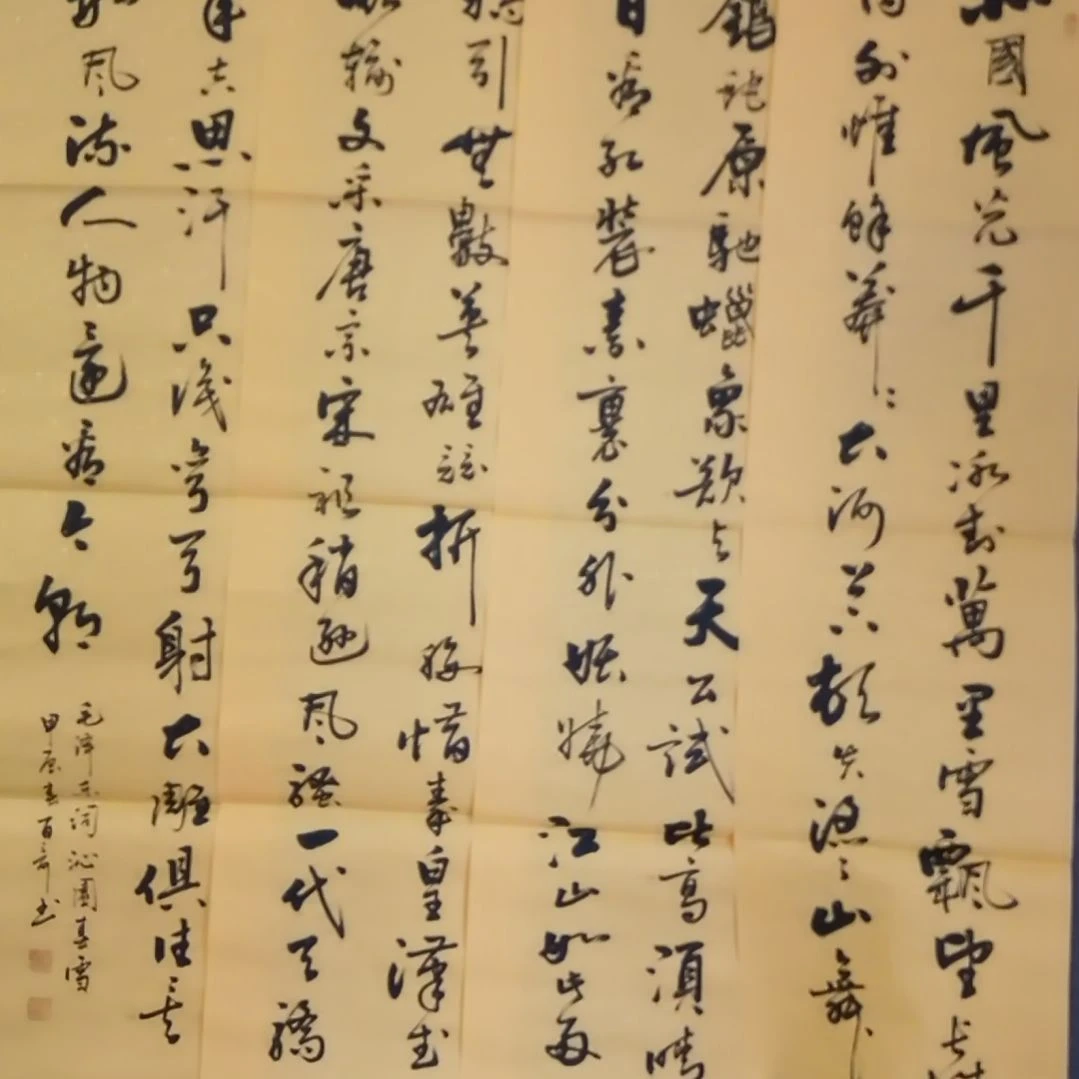 北國風光千里冰封萬里雪飄望長城
内外惟餘莽々大河上下頓失滔々山舞
銀蛇原馳蠟象欲与天公試比高須晴
日看紅裝素裹分外妖嬈江山如此多
嬌引無數英雄競折腰惜秦皇漢武
略輸文采唐宗宋祖稍遜风騷一代天驕
成吉思汗只識彎弓射大雕俱往矣
數风流人物還看今朝
毛澤东詞沁園春雪
甲辰春百书